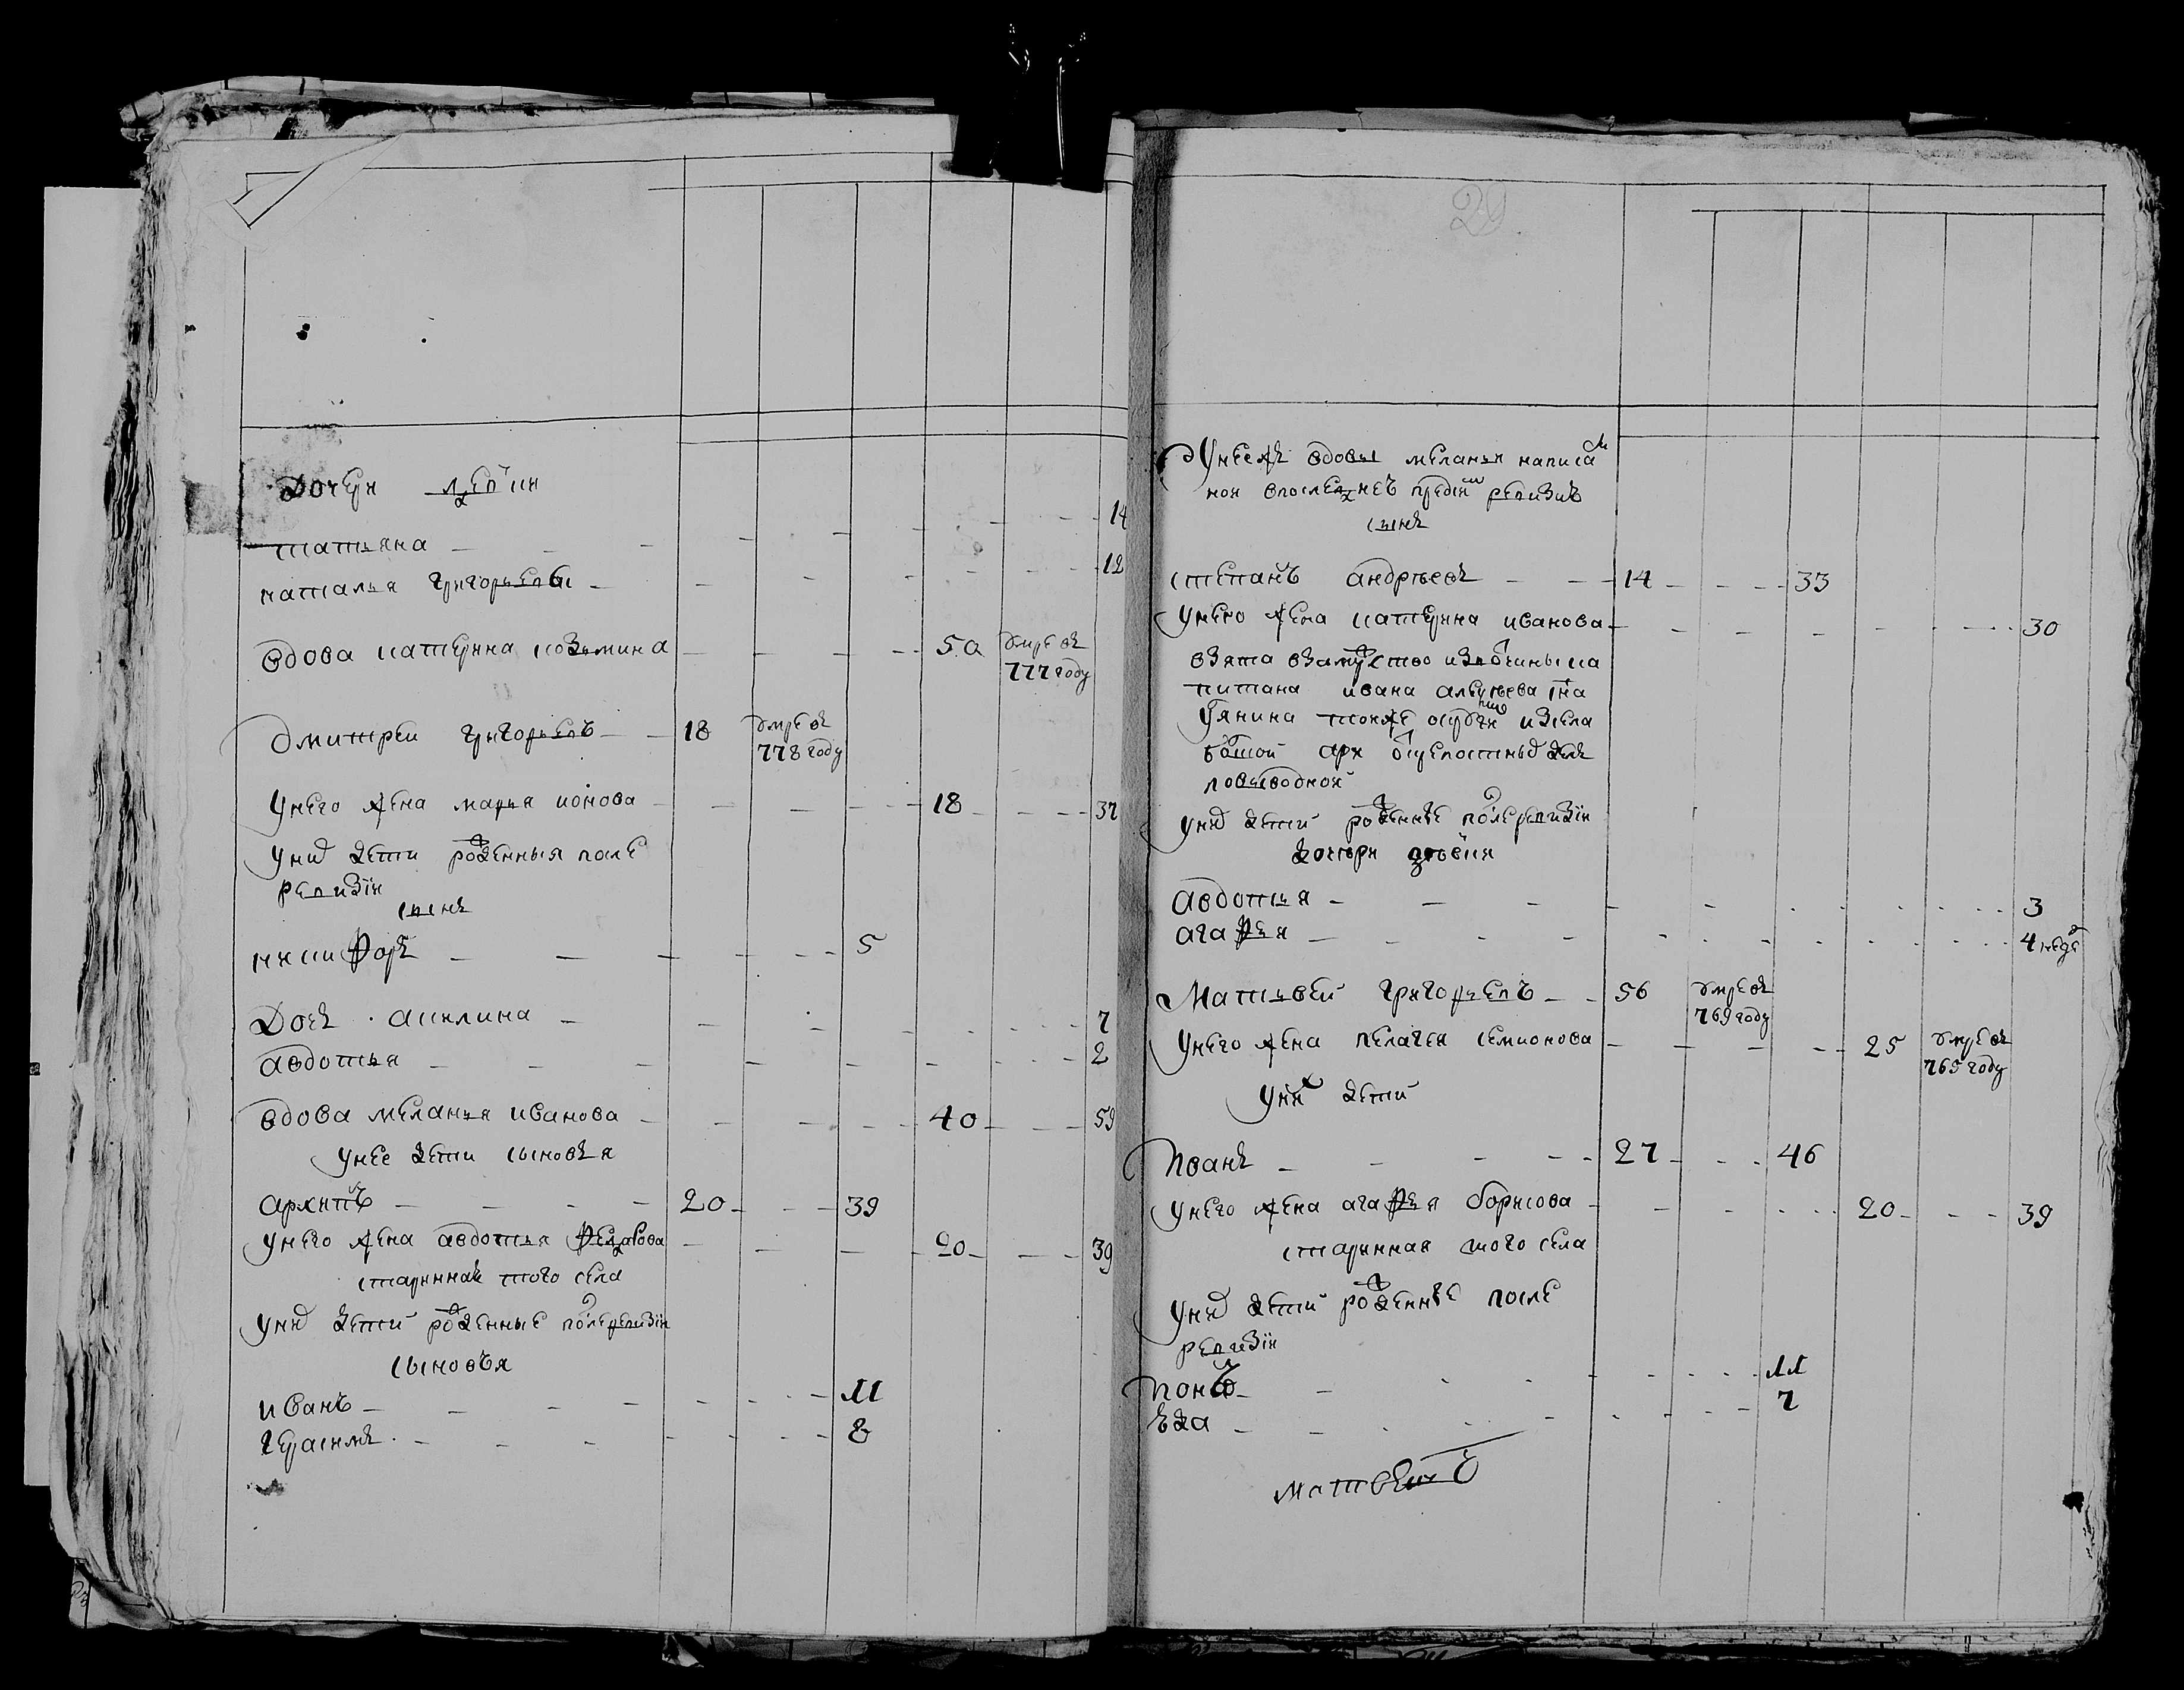 дочери девки
татьяна 14
наталья григорьевы 12
вдова катерина козьмина 50 умре въ
777 году
дмитреи григорьевъ 18 умре въ
778 году
у него жена марья ионова 18 37
у них дети рожденныя после
ревизiи
сынъ
никифоръ 5
дочь акилина 7
авдотья 2
вдова меланья иванова 40 59
у нее дети сыновья
архипъ 20 39
у него жена авдотья федорова 20 39
стариннаѣ того села
у них дети рожденные после ревизiи
сыновья
иванъ 11
герасимъ 8
29
у нее жъ вдовы меланьи написа
нои в последнеѣ пред сим ревизиѣ
сынъ
степанъ андрѣевъ 14 33
у него жена катерина иванова 30
взята в замужство из вотчины ка
питана ивана
из села
по выводной
у них дети рожденные после ревизiи
дочѣри дѣвки
авдотья 3
агафья 4 неде
Матьвеи григорьевъ 56 умре въ
769 году
у него жена пелагея семионова 25 умре въ
769 году
у них дети
иванъ 27 46
у него жена агафья борисова 20 39
старинная того села
у них дети рожденные после
ревизiи
11
7
матвеичъ